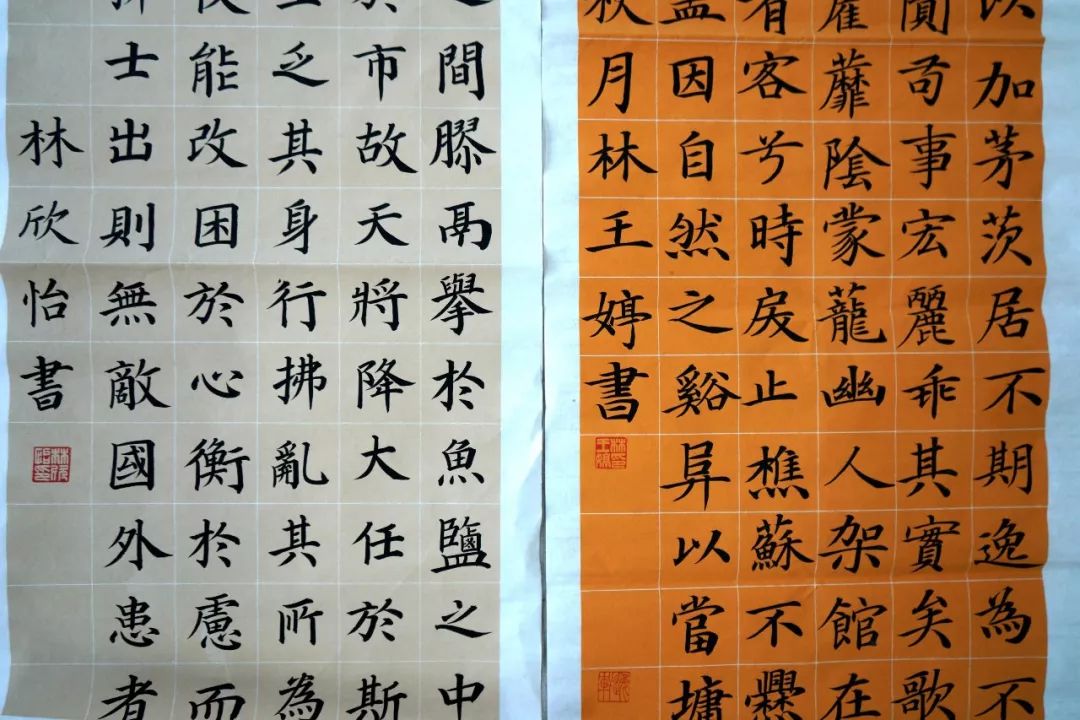 以加茅茨居不期逸為不
闃苟事宏麗乖其實矣歌
蘼陰蒙蘢幽人架館在
有客兮時戾止樵蘇不爨
盖因自然之谿阜以當墉
秋月林王婷書
之間膠鬲舉於魚鹽之中
於市故天將降大任於斯
乏其身行拂亂其所為
能改困於心衡於慮而
士出則無敵國外患者
林欣怡書